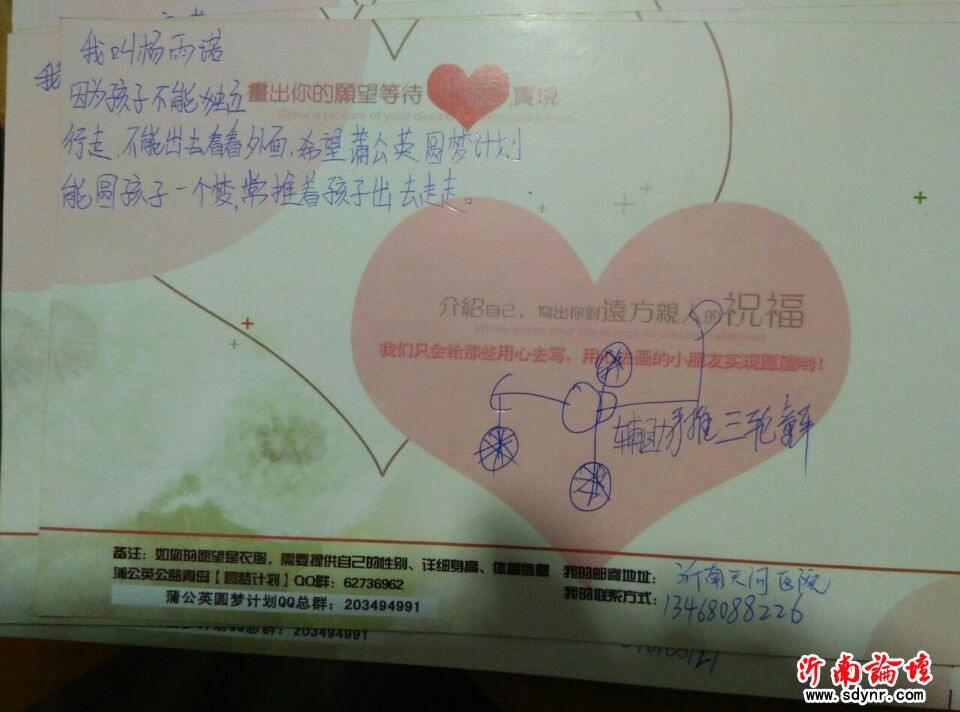 我叫杨雨诺
我
因为孩子不能独立
畫出你的願望等待 實現
Draw a picture of your desire
行走,不能出去看看外面,希望蒲公英圆梦计划
能圆孩子一个梦,常推着孩子出去走走。
介紹自己,寫出你對遠方親人的祝福
Write down your blessings to distant relatives
我们只会给那些用心去写、用心去画的小朋友实现愿望哟!
辅助手推三轮童车
备注:如您的愿望是衣服,需要提供自己的性别、详细身高、体重信息
蒲公英公益青岛【圆梦计划】QQ群:62736962
蒲公英圆梦计划QQ总群:203494991
我的邮寄地址:沂南天河医院
我的联系方式:13468088226
QQ总群:203494991
沂南論壇
www.sdynr.com